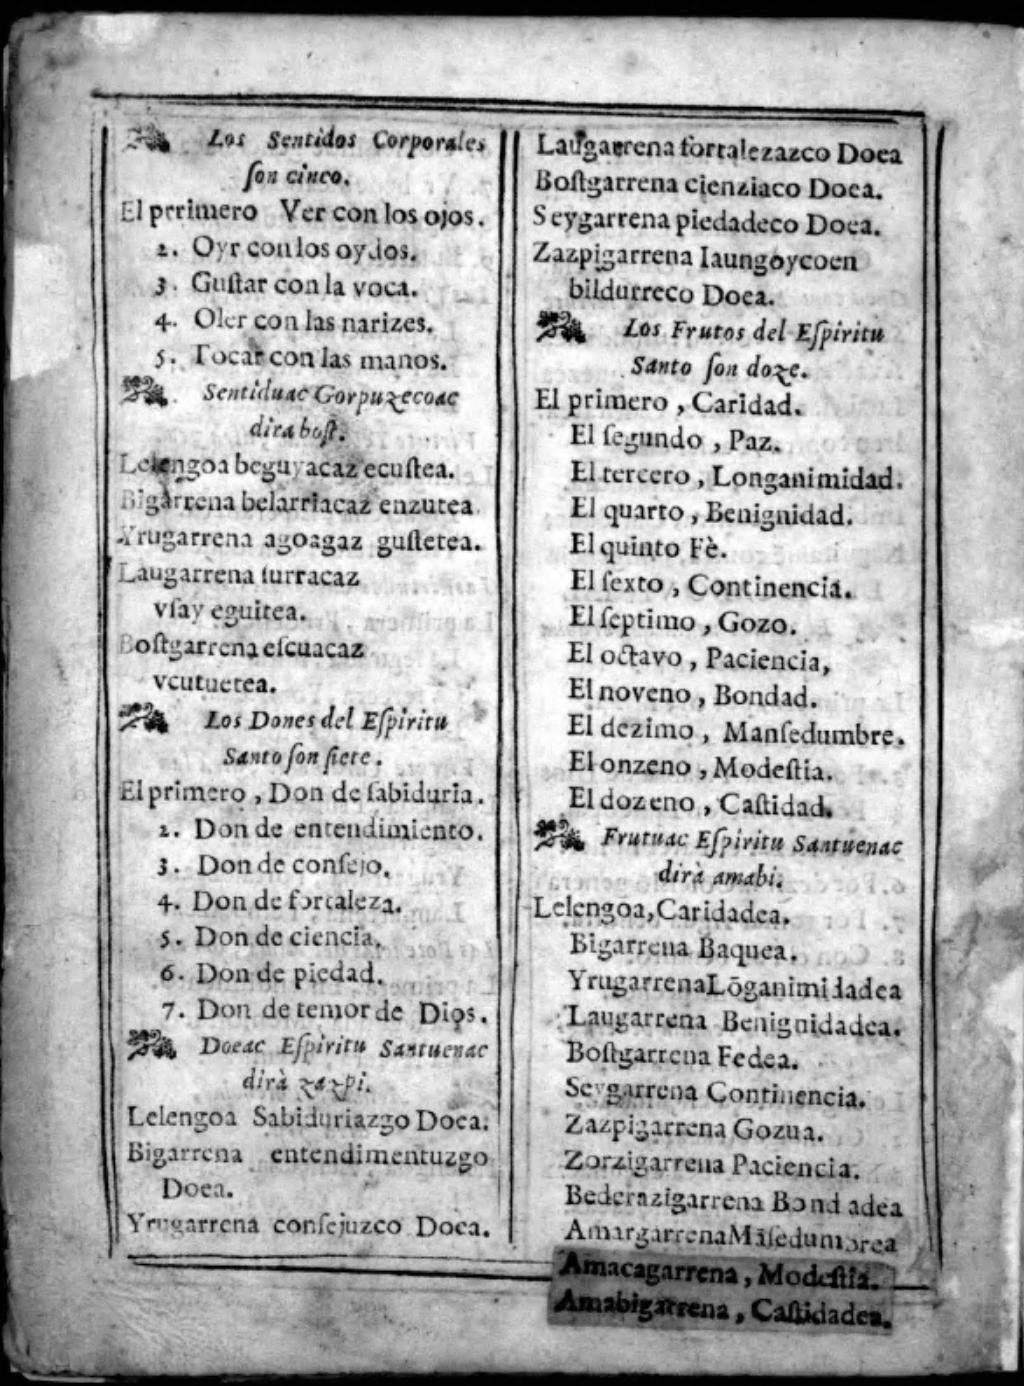 Los Sentidos Corporales
ſon cinco.
El prrimero Ver con los ojos.
2. Oyr con los oydos.
3. Guſtar con la voca.
4. Oler con las narizes.
5. Tocar con las manos.
Sentiduac Gorpuzecoac
dira boſt.
Lelengoa beguyacaz ecuſtea.
Bigarrena belarriacaz enzutea.
Yrugarrena agoagaz guſtetea.
Laugarrena ſurracaz
vſay eguitea.
Boſtgarrena eſcuacaz
vcutuetea.
Los Dones del Eſpiritu
Santo ſon ſiete.
El primero, Don de ſabiduria.
2. Don de entendimiento.
3. Don de conſejo.
4. Don de fortaleza.
5. Don de ciencia.
6. Don de piedad.
7. Don de temor de Dios.
Doeac Eſpiritu Santuenac
dirà zazpi.
Lelengoa Sabiduriazgo Doea.
Bigarrena entendimentuzgo
Doea.
Yrugarrena conſejuzco Doea.
Laugarrena fortalezazco Doea
Boſtgarrena cienziaco Doea.
Seygarrena piedadeco Doea.
Zazpigarrena Iaungoycoen
bildurreco Doea.
Los Frutos del Eſpiritu
Santo ſon doze.
El primero, Caridad.
El ſegundo, Paz.
El tercero, Longanimidad.
El quarto, Benignidad.
El quinto Fè.
El ſexto, Continencia.
El ſeptimo, Gozo.
El octavo, Paciencia,
El noveno, Bondad.
El dezimo, Manſedumbre.
El onzeno, Modeſtia.
El dozeno, Caſtidad.
Frutuac Eſpiritu Santuenac
dirà amabi.
Lelengoa, Caridadea.
Bigarrena Baquea.
Yrugarrena Lōganimidadea
Laugarrena Benignidadea.
Boſtgarrena Fedea.
Seygarrena Continencia.
Zazpigarrena Gozua.
Zorzigarrena Paciencia.
Bederazigarrena Bondadea
Amargarrena Māſedumbrea
Amacagarrena, Modeſtia.
Amabigarrena, Caſtidadea.